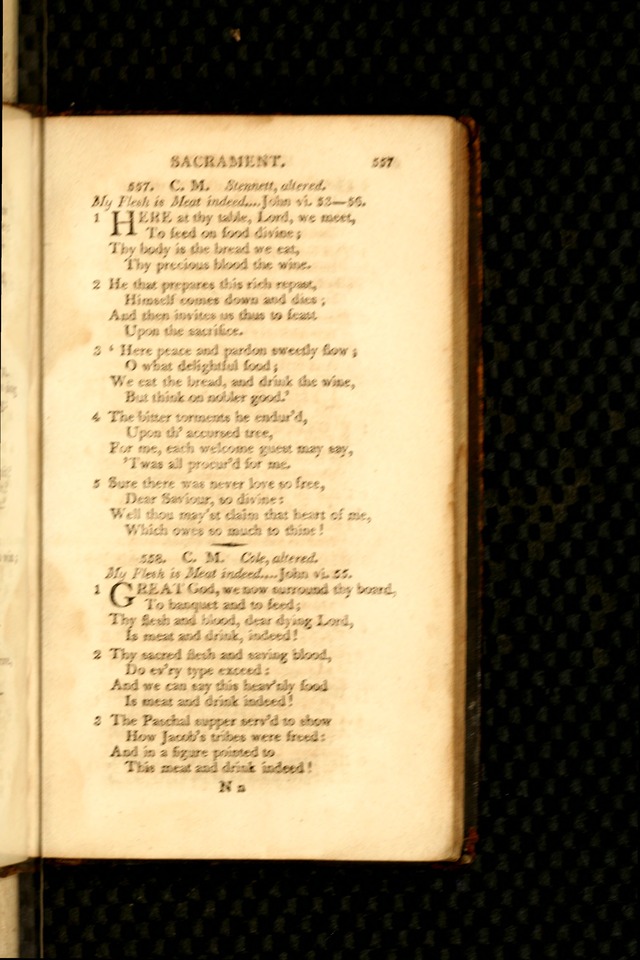 SACRAMENT. 557
557. C. M. Stennett, altered.
My Flesh is Meat indeed....John vi. 53—56.
1 HERE at thy table, Lord, we meet,
To feed on food divine;
Thy body is the bread we eat,
Thy precious blood the wine.
2 He that prepares this rich repast,
Himself comes down and dies;
And then invites us thus to feast
Upon the sacrifice.
3 ‘ Here peace and pardon sweetly flow;
O what delightful food;
We eat the bread, and drink the wine,
But think on nobler good.’
4 The bitter torments he endur'd,
Upon th' accursed tree,
For me, each welcome guest may say,
'Twas all procur'd for me.
5 Sure there was never love so free,
Dear Saviour, so divine:
Well thou may'st claim that heart of me,
Which owes so much to thine!
558. C. M. Cole, altered.
My Flesh is Meat indeed....John vi. 55.
1 GREAT God, we now surround thy board,
To banquet and to feed;
Thy flesh and blood, dear dying Lord,
Is meat and drink, indeed!
2 Thy sacred flesh and saving blood,
Do ev'ry type exceed:
And we can say this heav'nly food
Is meat and drink indeed!
3 The Paschal supper serv'd to show
How Jacob's tribes were freed:
And in a figure pointed to
This meat and drink indeed!
N n